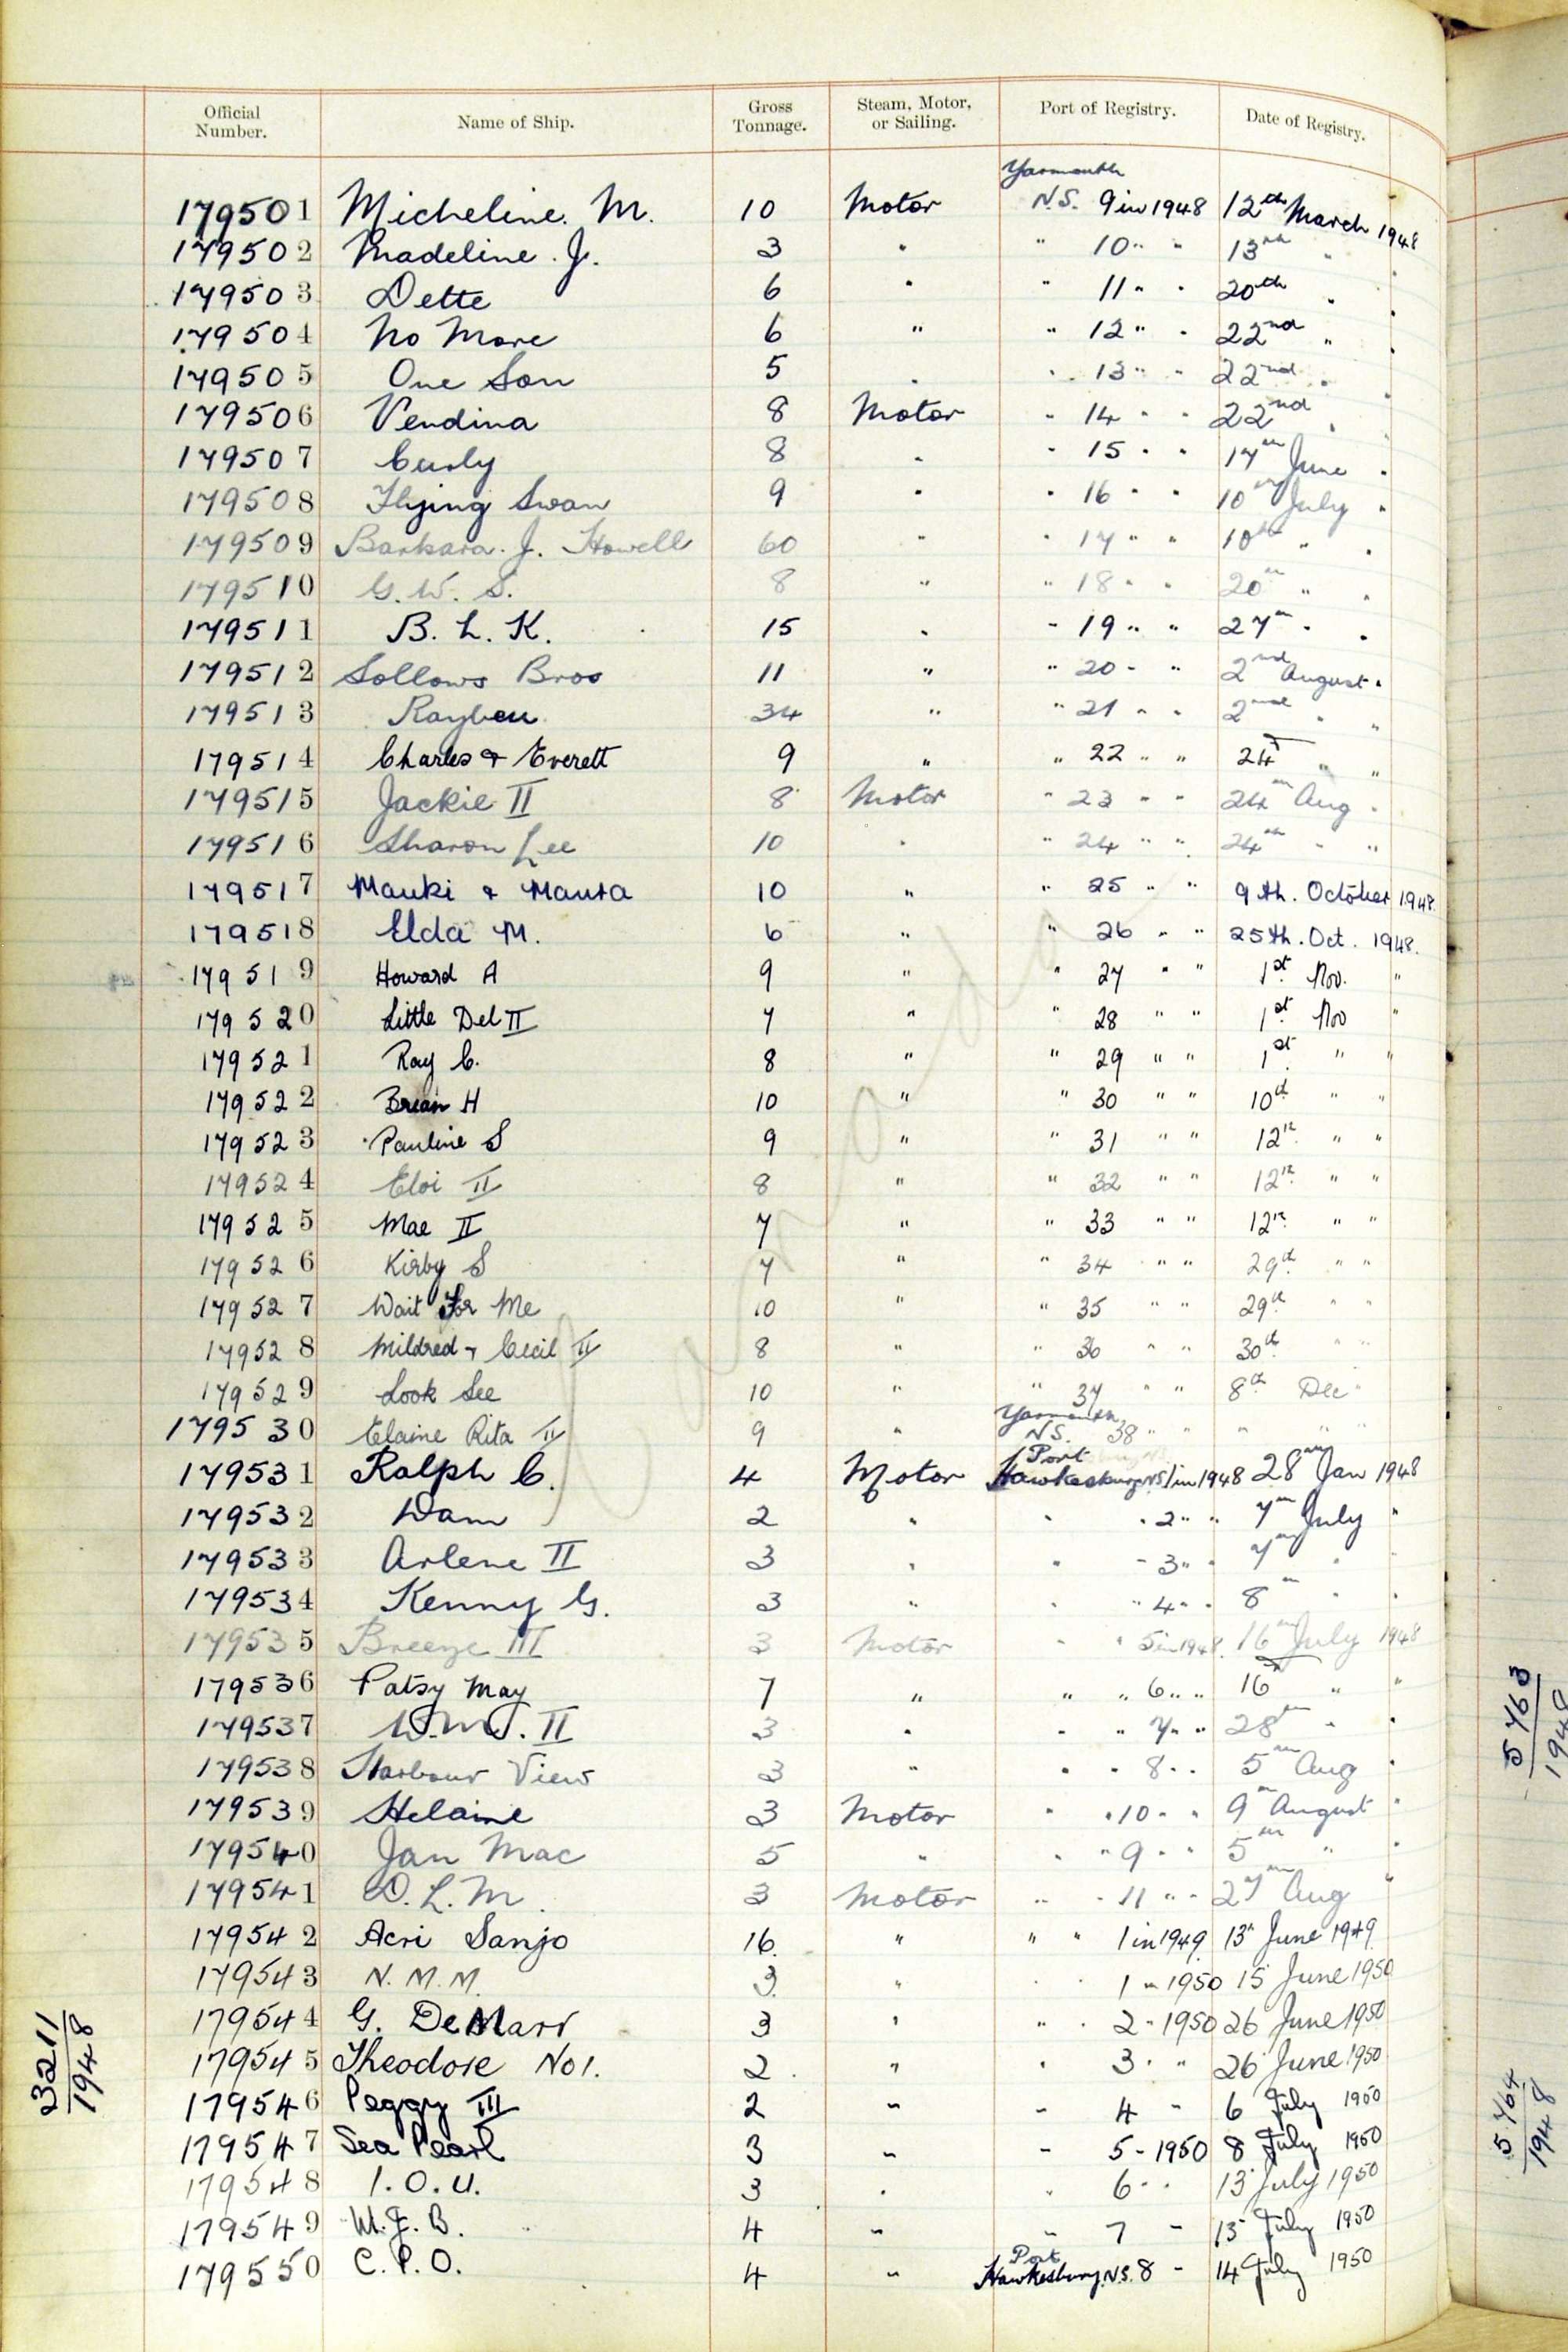 Official Number. Name of Ship. Gross Tonnage. Steam, Motor, or Sailing. Port of Registry. Date of Registry.
Yarmouth
179501 Micheline. M. 10 Motor N.S. 9 in 1948 12th March 1948
179502 Madeline. J. 3 " " 10 " " 13th " "
179503 Dette 6 " " 11 " " 20th " "
179504 No More 6 " " 12 " " 22nd " "
179505 One Son 5 " " 13 " " 22nd " "
179506 Vendina 8 Motor " 14 " " 22nd " "
179507 Curly 8 " " 15 " " 17th June "
179508 Flying Swan 9 " " 16 " " 10th July "
179509 Barbara. J. Howell 60 " " 17 " " 10th " "
179510 G. W. S. 8 " " 18 " " 20th " "
179511 B. L. K. 15 " " 19 " " 27th " "
179512 Sollows Bros 11 " " 20 " " 2nd August "
179513 Rayben 34 " " 21 " " 2nd " "
179514 Charles & Everett 9 " " 22 " " 24th " "
179515 Jackie II 8 Motor " 23 " " 24th Aug "
179516 Sharon Lee 10 " " 24 " " 24th " "
179517 Mauki & Maura 10 " " 25 " " 9th. October 1948.
179518 Elda M. 6 " " 26 " " 25th. Oct. 1948.
179519 Howard A 9 " " 27 " " 1st Nov. "
179520 Little Del II 7 " " 28 " " 1st Nov "
179521 Ray C. 8 " " 29 " " 1st " "
179522 Brian H 10 " " 30 " " 10th " "
179523 Pauline S 9 " " 31 " " 12th " "
179524 Eloi II 8 " " 32 " " 12th " "
179525 Mae II 7 " " 33 " " 12th " "
179526 Kirby S 7 " " 34 " " 29th " "
179527 Wait For Me 10 " " 35 " " 29th " "
179528 Mildred & Cecil II 8 " " 36 " " 30th " "
179529 Look See 10 " " 37 " " 8th Dec "
Yarmouth
179530 Elaine Rita II 9 " N.S. 38 " " " " "
Port
179531 Ralph C. 4 Motor Hawkesbury N.S. 1 in 1948 28th Jan 1948
179532 Dam 2 " " " 2 " " 7th July "
179533 Arlene II 3 " " " 3 " " 7th " "
179534 Kenny G. 3 " " " 4 " " 8th " "
179535 Breeze III 3 Motor " " 5 in 1948 16th July 1948
179536 Patsy May 7 " " " 6 " " 16th " "
179537 II 3 " " " 7 " " 28th " "
179538 Harbour View 3 " " " 8 " " 5th Aug "
179539 Helaine 3 Motor " " 10 " " 9th August "
179540 Jan Mac 5 " " " 9 " " 5th " "
179541 D. L. M. 3 Motor " " 11 " " 27th Aug "
179542 Acri Sanjo 16 " " " 1 in 1949 13th June 1949
179543 N. M. M. 3 " " " 1 " 1950 15 June 1950
179544 G. DeMarr 3 " " " 2 - 1950 26 June 1950
179545 Theodore No 1. 2 " " 3 " " 26 June 1950
179546 Peggy III 2 " " 4 " 6 July 1950
179547 Sea Pearl 3 " " 5 - 1950 8 July 1950
179548 I. O. U. 3 " " 6 " " 13 July 1950
179549 W. J. B. 4 " " 7 " 13 July 1950
Port
179550 C. P. O. 4 " Hawkesbury N.S. 8 " 14 July 1950
Canada
23211
1948
5763
1948
5764
1948